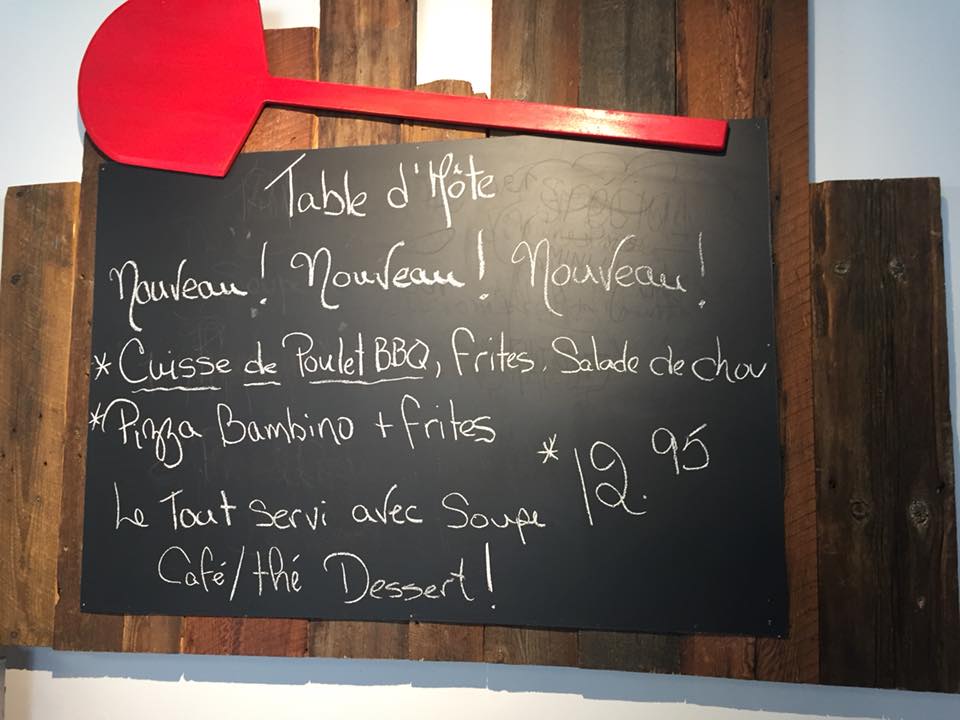 Table d'Hôte
Nouveau! Nouveau! Nouveau!
* Cuisse de Poulet BBQ, frites, Salade de chou
* Pizza Bambino + frites
* 12.95
Le Tout Servi avec Soupe
Café/thé Dessert!